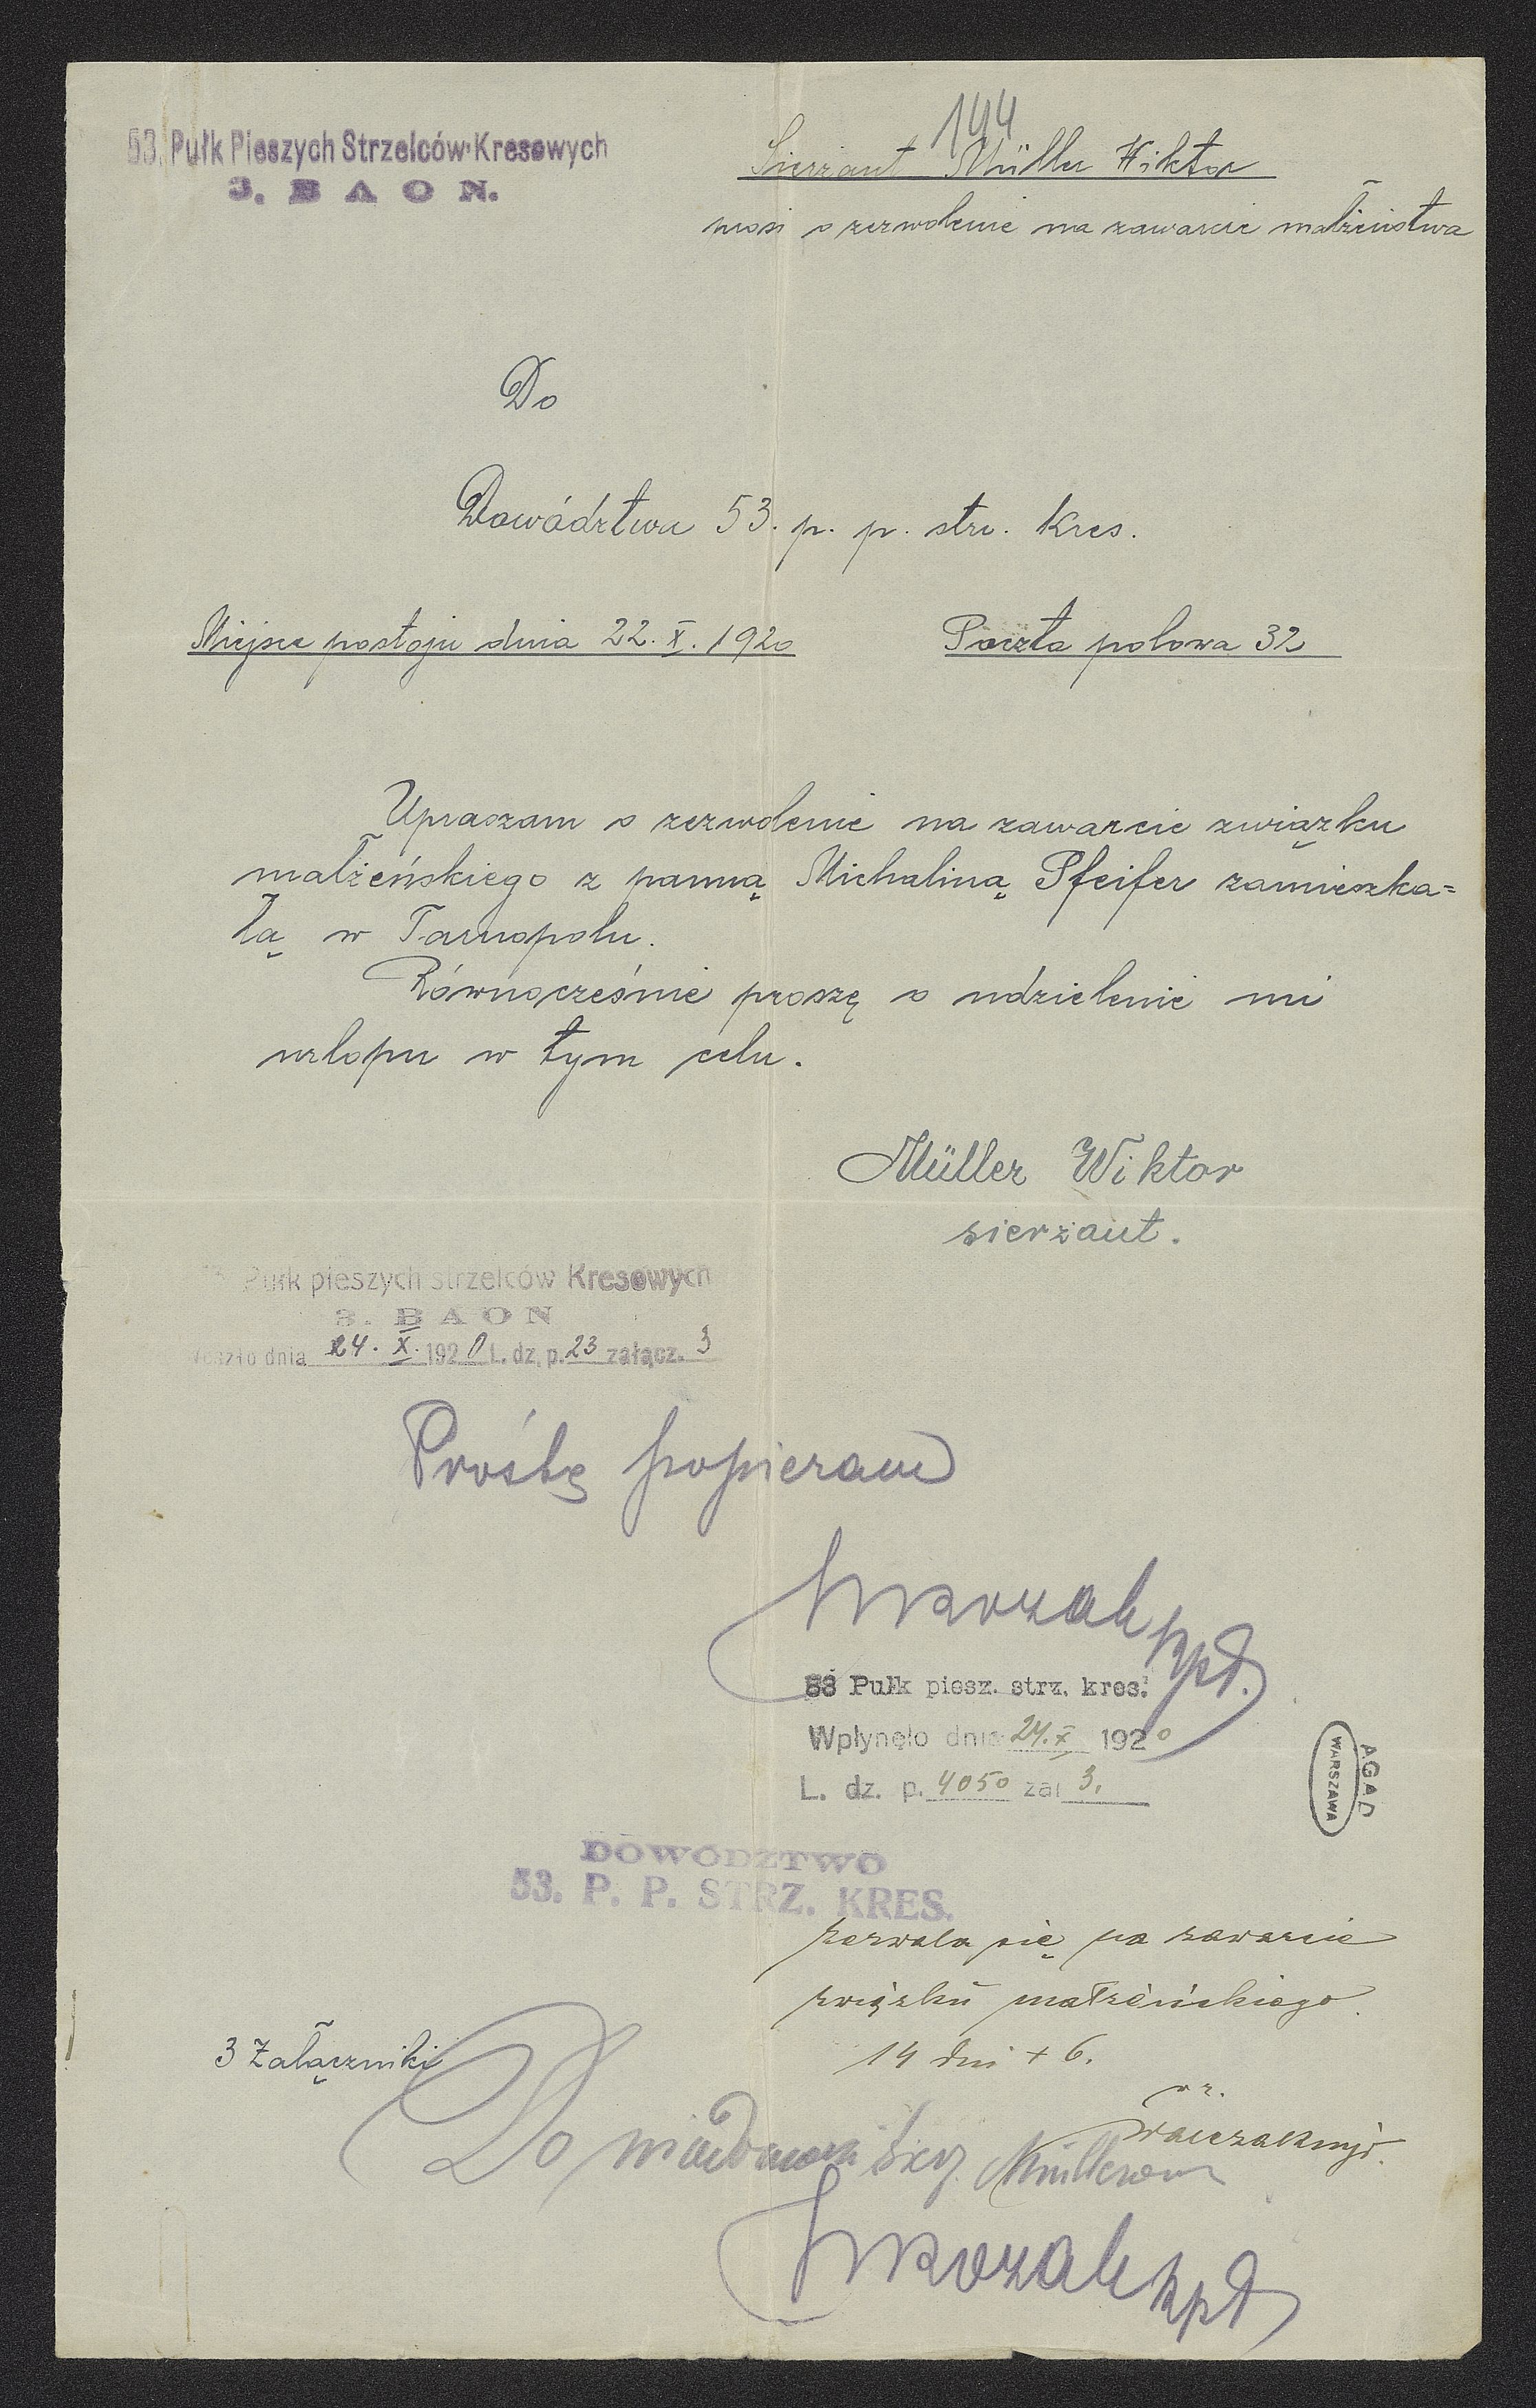 144
53. Pułk Pieszych Strzelców Kresowych
3. BAON.
Sierżant Müller Wiktor
prosi o zezwolenie na zawarcie małżeństwa
Do
Dowództwa 53. p. p. strz. Kres.
Miejsce postoju dnia 22. X. 1920
Poczta polowa 32
Upraszam o zezwolenie na zawarcie związku
małżeńskiego z panną Michaliną Pfeifer zamieszka=
łą w Tarnopolu.
Równocześnie proszę o udzielenie mi
urlopu w tym celu.
Müller Wiktor
sierżant.
Pułk pieszych strzelców Kresowych
3. BAON
Weszło dnia 24. X. 1920 L. dz. p. 23 załącz. 3
Prośbę popieram
kpt.
53 Pułk piesz. strz. kres.
Wpłynęło dnia 24. X 1920
L. dz. p. 4050 zał 3.
AGAD
WARSZAWA
DOWÓDZTWO
53. P. P. STRZ. KRES.
zezwala się na zawarcie
związku małżeńskiego.
14 dni + 6.
3 Załączniki
wz.
mjr.
Do sierż. Müllerowi
kpt